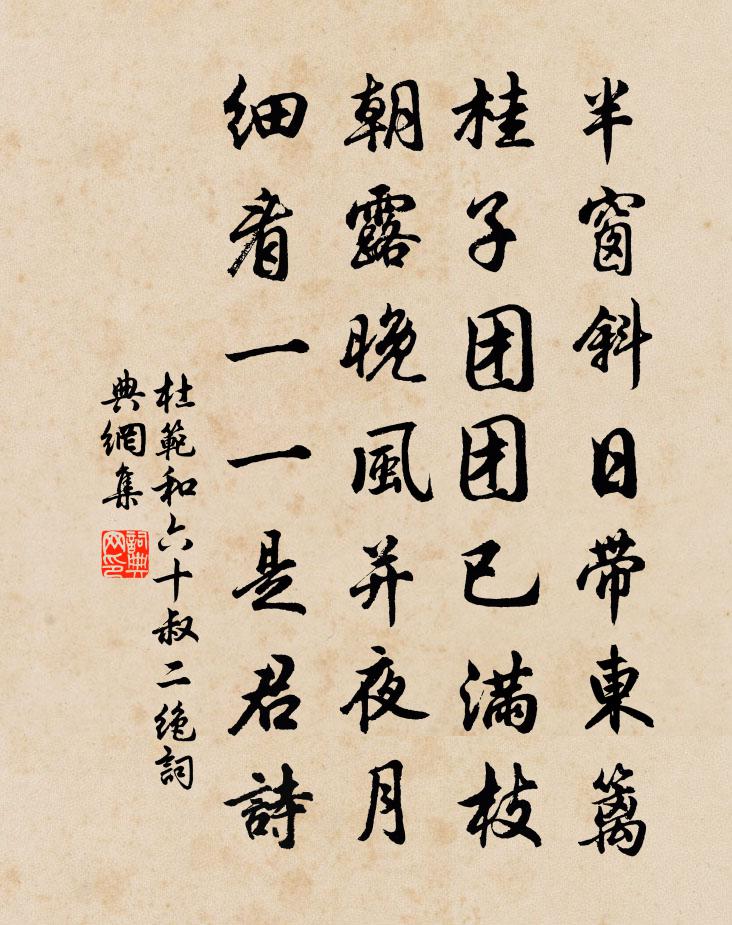 半窗斜日带東篱
桂子团团已满枝
朝露晚風并夜月
细看一一是君詩
杜範和六十叔二绝詞
典網集
詞典
网印